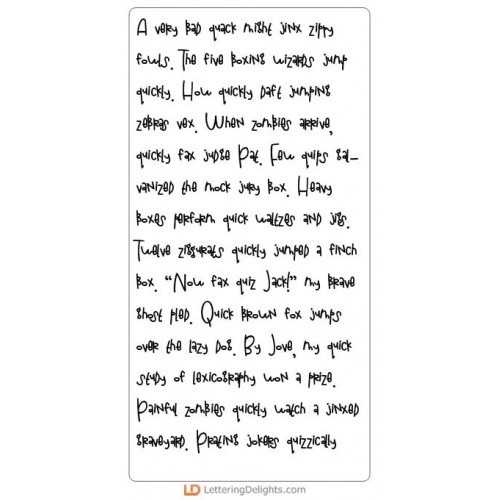 A very bad quack might jinx zippy
fowls. The five boxing wizards jump
quickly. How quickly daft jumping
zebras vex. When zombies arrive,
quickly fax judge Pat. Few quips gal-
vanized the mock jury box. Heavy
boxes perform quick waltzes and jigs.
Twelve ziggurats quickly jumped a finch
box. "Now fax quiz Jack!" my brave
ghost pled. Quick brown fox jumps
over the lazy dog. By Jove, my quick
study of lexicography won a prize.
Painful zombies quickly watch a jinxed
graveyard. Prating jokers quizzically
LD LetteringDelights.com